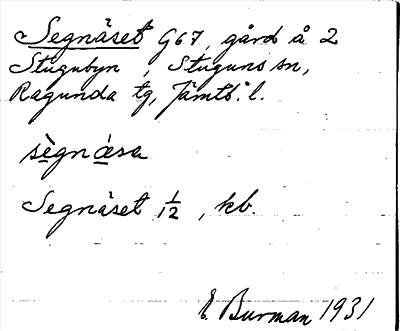 Segnäset G67, gård å 2
Stugubyn, Stuguns sn,
Ragunda tg, Jämtl. l.
sègnǽsa
Segnäset 1/12, kb.
E. Burman 1931